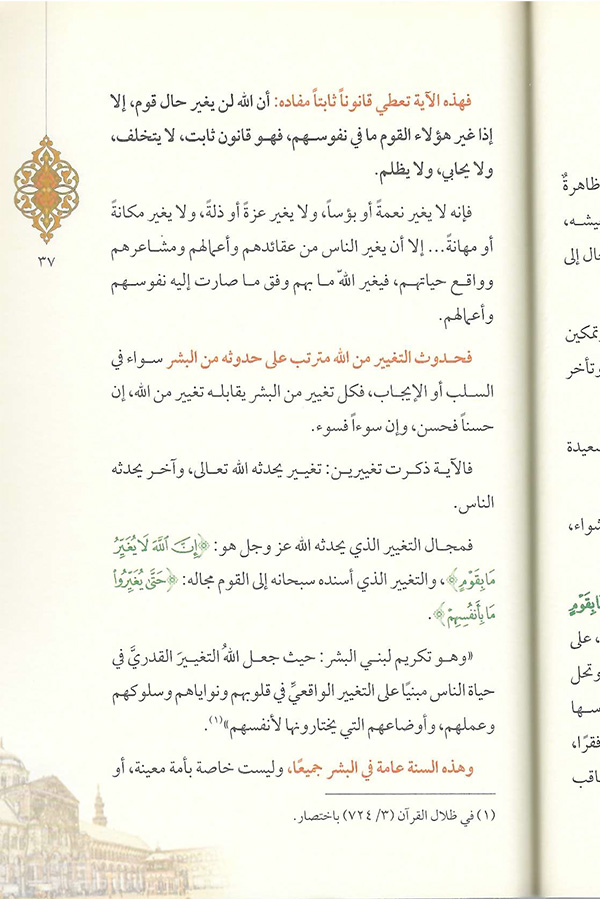 فهذه الآية تعطي قانوناً ثابتاً مفاده: أن الله لن يغير حال قوم، إلا
إذا غير هؤلاء القوم ما في نفوسهم، فهو قانون ثابت، لا يتخلف،
ولا يحابي، ولا يظلم.
فإنه لا يغير نعمةً أو بؤساً، ولا يغير عزةً أو ذلةً، ولا يغير مكانةً
أو مهانةً... إلا أن يغير الناس من عقائدهم وأعمالهم ومشاعرهم
وواقع حياتهم، فيغير اللهّ ما بهم وفق ما صارت إليه نفوسهم
وأعمالهم.
فحدوث التغيير من الله مترتب على حدوثه من البشر سواء في
السلب أو الإيجاب، فكل تغيير من البشر يقابله تغيير من الله، إن
حسناً فحسن، وإن سوءاً فسوء.
فالآية ذكرت تغييرين: تغيير يحدثه الله تعالى، وآخر يحدثه
الناس.
فمجال التغيير الذي يحدثه الله عز وجل هو: ﴿إِنَّ ٱللَّهَ لَا يُغَيِّرُ
مَا بِقَوْمٍ﴾، والتغيير الذي أسنده سبحانه إلى القوم مجاله: ﴿حَتَّىٰ يُغَيِّرُوا۟
مَا بِأَنفُسِهِمْ﴾.
«وهو تكريم لبني البشر: حيث جعل اللهُ التغييرَ القدريَّ في
حياة الناس مبنيًا على التغيير الواقعيِّ في قلوبهم ونواياهم وسلوكهم
وعملهم، وأوضاعهم التي يختارونها لأنفسهم»(١).
وهذه السنة عامة في البشر جميعًا، وليست خاصة بأمة معينة، أو
(١) في ظلال القرآن (٣/ ٧٢٤) باختصار.
٣٧
ظاهرةٌ
يشه،
حال إلى
وتمكين
وتأخر
سعيدة
شواء،
مَا بِقَوْمٍ
، على
وتحل
سها
فقرًا،
اقب